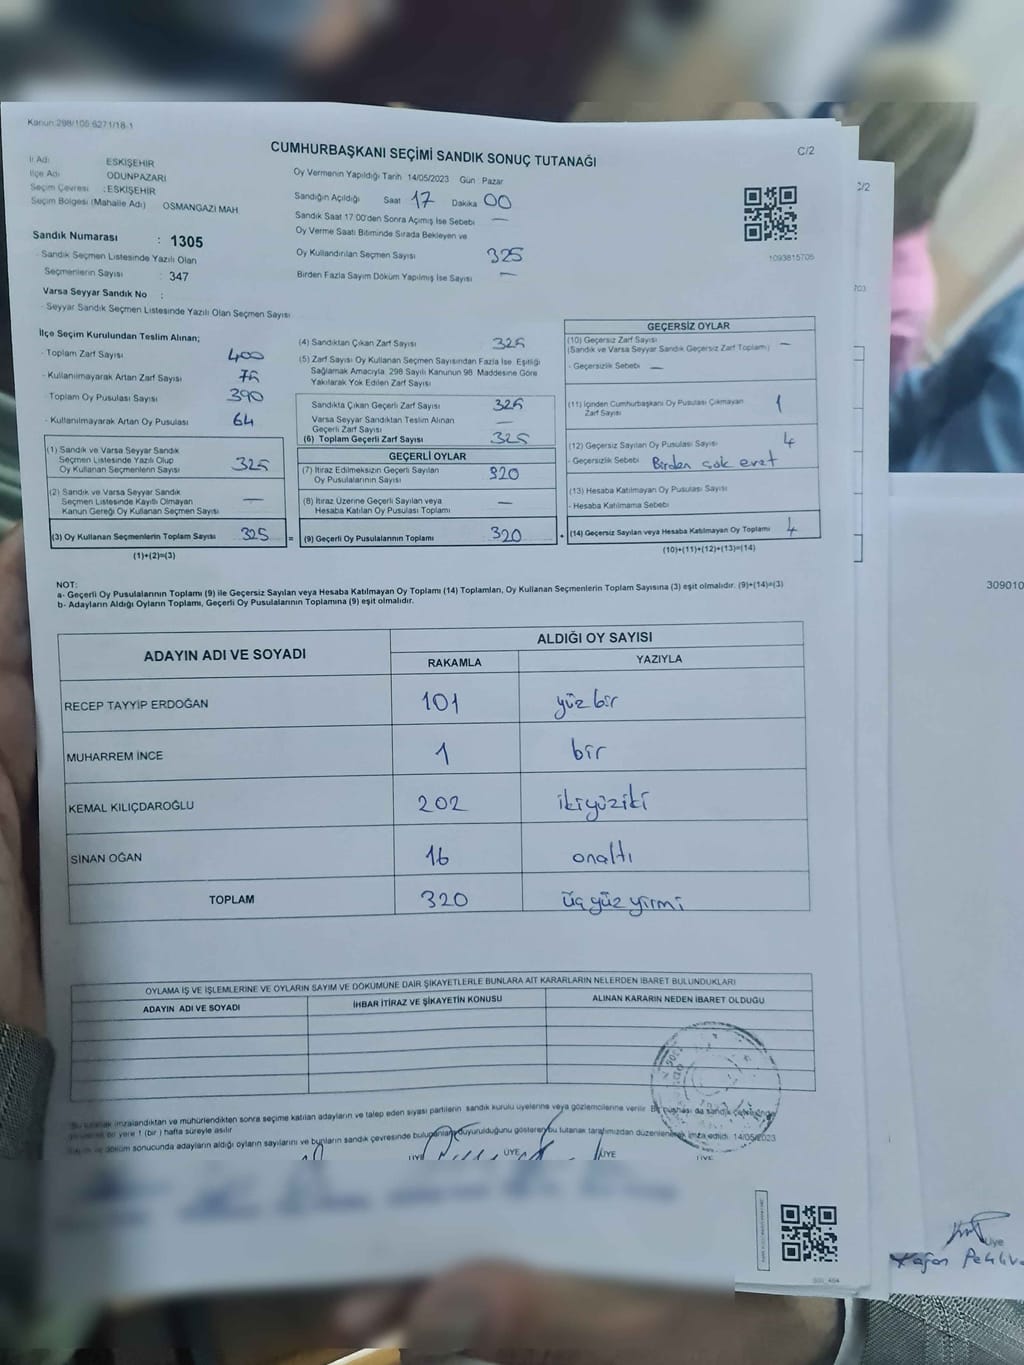 Kanun:298/105 6271/18-1
CUMHURBAŞKANI SEÇİMİ SANDIK SONUÇ TUTANAĞI
C/2
C/2
İl Adı ESKİŞEHİR
İlçe Adı ODUNPAZARI
Seçim Çevresi : ESKİŞEHİR
Seçim Bölgesi (Mahalle Adı) OSMANGAZİ MAH
Sandık Numarası : 1305
Sandık Seçmen Listesinde Yazılı Olan
Seçmenlerin Sayısı : 347
Varsa Seyyar Sandık No :
- Seyyar Sandık Seçmen Listesinde Yazılı Olan Seçmen Sayısı
Oy Vermenin Yapıldığı Tarih 14/05/2023 Gün Pazar
Sandığın Açıldığı Saat 17 Dakika 00
Sandık Saat 17 00'den Sonra Açılmış İse Sebebi —
Oy Verme Saati Bitiminde Sırada Bekleyen ve
Oy Kullandırılan Seçmen Sayısı 325
Birden Fazla Sayım Döküm Yapılmış İse Sayısı —
1093815705
703
İlçe Seçim Kurulundan Teslim Alınan;
- Toplam Zarf Sayısı 400
- Kullanılmayarak Artan Zarf Sayısı
- Toplam Oy Pusulası Sayısı 390
- Kullanılmayarak Artan Oy Pusulası 64
(1) Sandık ve Varsa Seyyar Sandık
Seçmen Listesinde Yazılı Olup
Oy Kullanan Seçmenlerin Sayısı 325
(2) Sandık ve Varsa Seyyar Sandık
Seçmen Listesinde Kayıtlı Olmayan
Kanun Gereği Oy Kullanan Seçmen Sayısı —
(3) Oy Kullanan Seçmenlerin Toplam Sayısı 325 =
(1)+(2)=(3)
(4) Sandıktan Çıkan Zarf Sayısı 325
(5) Zarf Sayısı Oy Kullanan Seçmen Sayısından Fazla İse Eşitliği
Sağlamak Amacıyla, 298 Sayılı Kanunun 98 Maddesine Göre
Yakılarak Yok Edilen Zarf Sayısı
Sandıkta Çıkan Geçerli Zarf Sayısı 325
Varsa Seyyar Sandıktan Teslim Alınan
Geçerli Zarf Sayısı —
(6) Toplam Geçerli Zarf Sayısı 325
GEÇERLİ OYLAR
(7) İtiraz Edilmeksizin Geçerli Sayılan
Oy Pusulalarının Sayısı 320
(8) İtiraz Üzerine Geçerli Sayılan veya
Hesaba Katılan Oy Pusulası Toplamı —
(9) Geçerli Oy Pusulalarının Toplamı 320 +
GEÇERSİZ OYLAR
(10) Geçersiz Zarf Sayısı
(Sandık ve Varsa Seyyar Sandık Geçersiz Zarf Toplamı) —
- Geçersizlik Sebebi —
(11) İçinden Cumhurbaşkanı Oy Pusulası Çıkmayan
Zarf Sayısı 1
(12) Geçersiz Sayılan Oy Pusulası Sayısı 4
- Geçersizlik Sebebi Birden çok evet
(13) Hesaba Katılmayan Oy Pusulası Sayısı
- Hesaba Katılmama Sebebi
(14) Geçersiz Sayılan veya Hesaba Katılmayan Oy Toplamı 4
(10)+(11)+(12)+(13)=(14)
NOT:
a- Geçerli Oy Pusulalarının Toplamı (9) ile Geçersiz Sayılan veya Hesaba Katılmayan Oy Toplamı (14) Toplamları, Oy Kullanan Seçmenlerin Toplam Sayısına (3) eşit olmalıdır. (9)+(14)=(3)
b- Adayların Aldığı Oyların Toplamı, Geçerli Oy Pusulalarının Toplamına (9) eşit olmalıdır.
309010
ADAYIN ADI VE SOYADI ALDIĞI OY SAYISI
RAKAMLA YAZIYLA
RECEP TAYYİP ERDOĞAN 101 yüz bir
MUHARREM İNCE 1 bir
KEMAL KILIÇDAROĞLU 202 ikiyüziki
SİNAN OĞAN 16 onaltı
TOPLAM 320 üç yüz yirmi
OYLAMA İŞ VE İŞLEMLERİNE VE OYLARIN SAYIM VE DÖKÜMÜNE DAİR ŞİKAYETLERLE BUNLARA AİT KARARLARIN NELERDEN İBARET BULUNDUKLARI
ADAYIN ADI VE SOYADI İHBAR İTİRAZ VE ŞİKAYETİN KONUSU ALINAN KARARIN NEDEN İBARET OLDUĞU
Bu tutanak imzalandıktan ve mühürlendikten sonra seçime katılan adayların ve talep eden siyasi partilerin sandık kurulu üyelerine veya gözlemcilerine verilir. Bir da sandık
bir yere 1 (bir) hafta süreyle asılır
döküm sonucunda adayların aldığı oyların sayılarını ve bunların sandık çevresinde duyurulduğunu gösteren bu tutanak tarafımızdan düzenlenerek imza edildi. 14/05/2023
ÜYE ÜYE ÜYE
Üye